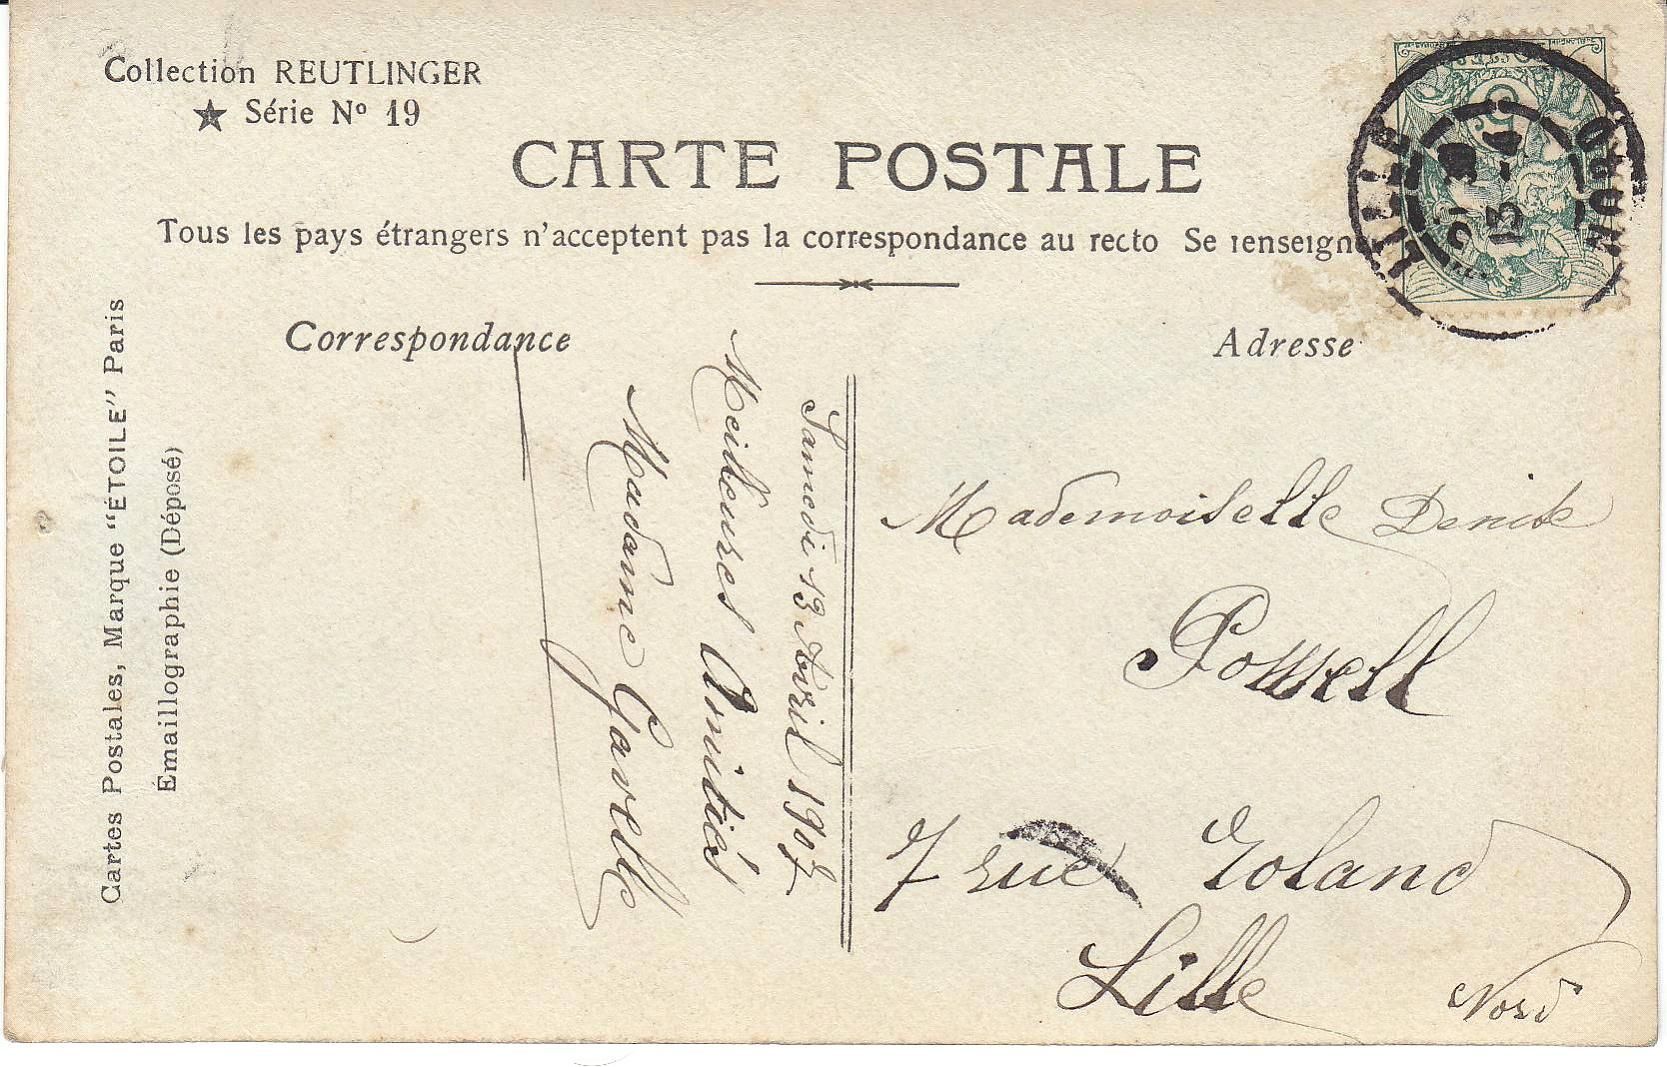 Collection REUTLINGER
★ Série Nº 19
CARTE POSTALE
Tous les pays étrangers n'acceptent pas la correspondance au recto Se renseigne
Correspondance
Samedi 13 Avril 1907
Meilleures Amitiés
Madame Gavelle
Adresse
Mademoiselle Denise
7 rue Roland
Lille
Nord
Cartes Postales, Marque "ÉTOILE" Paris
Émaillographie (Déposé)
LILLE
13 -4
NORD
5